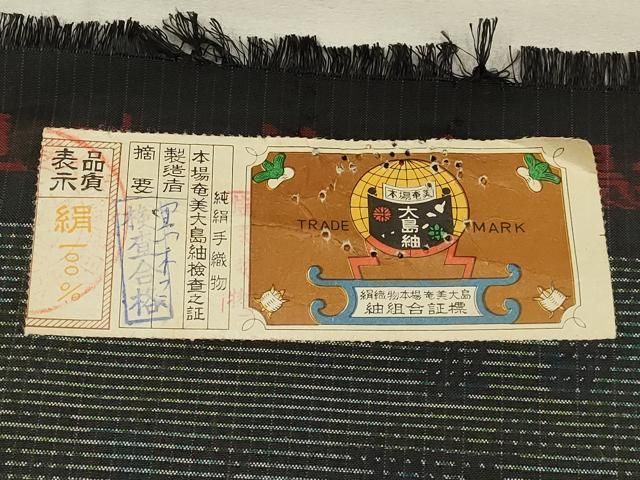 品質
表示
絹
100%
純絹手織物
本場奄美大島紬検査之証
製造者
摘要
検査合格
本場奄美
大島紬
TRADE MARK
絹織物本場奄美大島
紬組合証標